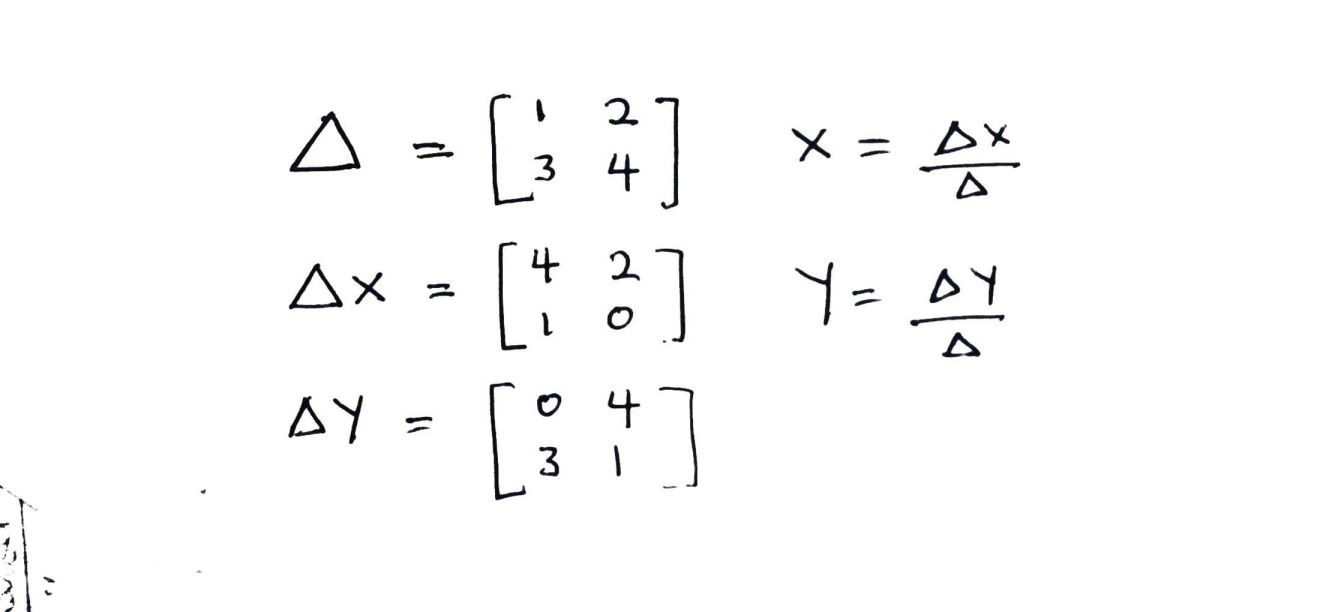 Δ = [1 2; 3 4] X = ΔX/Δ
ΔX = [4 2; 1 0] Y = ΔY/Δ
ΔY = [0 4; 3 1]